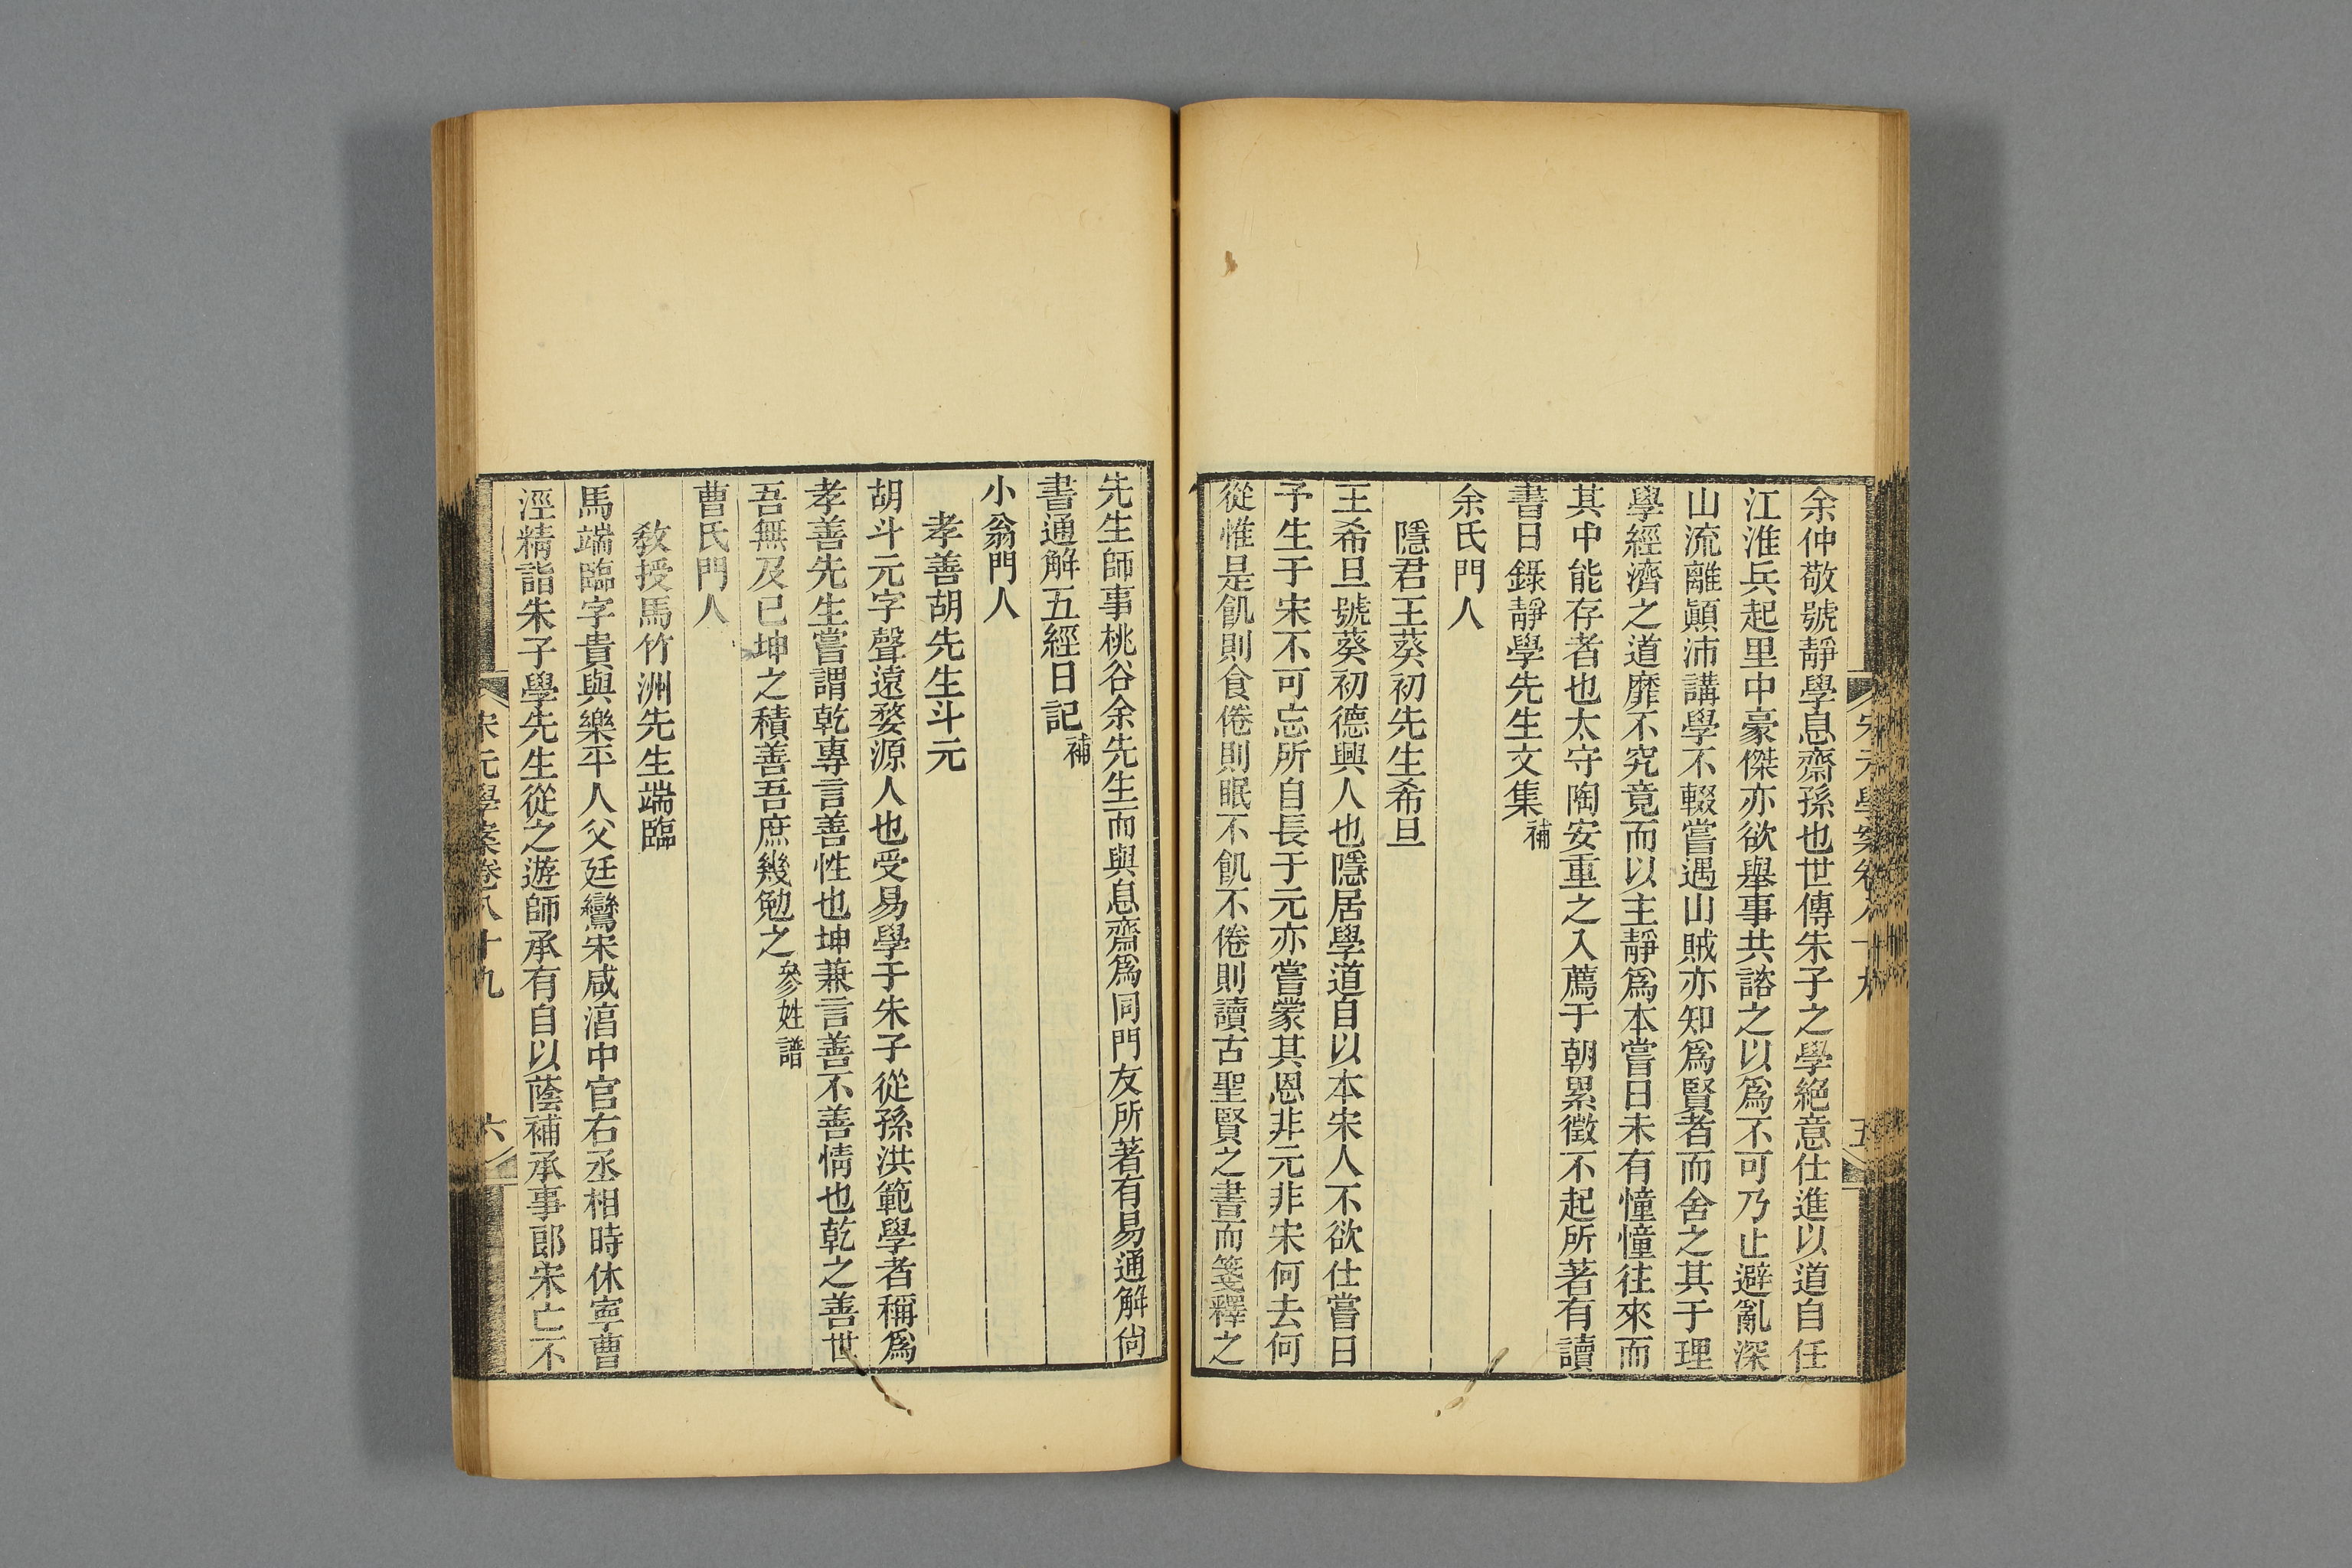 余仲敬號靜學息齋孫也世傳朱子之學絕意仕進以道自任
江淮兵起里中豪傑亦欲舉事共諮之以爲不可乃止避亂深
山流離顚沛講學不輟嘗遇山賊亦知爲賢者而舍之其于理
學經濟之道靡不究竟而以主靜爲本嘗曰未有憧憧往來而
其中能存者也太守陶安重之入薦于朝累徵不起所著有讀
書日錄靜學先生文集補
余氏門人
隱君王葵初先生希旦
王希旦號葵初德興人也隱居學道自以本宋人不欲仕嘗曰
予生于宋不可忘所自長于元亦嘗蒙其恩非元非宋何去何
從惟是飢則食倦則眠不飢不倦則讀古聖賢之書而箋釋之
宋元學案卷八十九
五
先生師事桃谷余先生而與息齋爲同門友所著有易通解尙
書通解五經日記補
小翁門人
孝善胡先生斗元
胡斗元字聲遠婺源人也受易學于朱子從孫洪範學者稱爲
孝善先生嘗謂乾專言善性也坤兼言善不善情也乾之善世
吾無及已坤之積善吾庶幾勉之參姓譜
曹氏門人
敎授馬竹洲先生端臨
馬端臨字貴與樂平人父廷鸞宋咸淳中官右丞相時休寧曹
涇精詣朱子學先生從之遊師承有自以蔭補承事郎宋亡不
宋元學案卷八十九
六